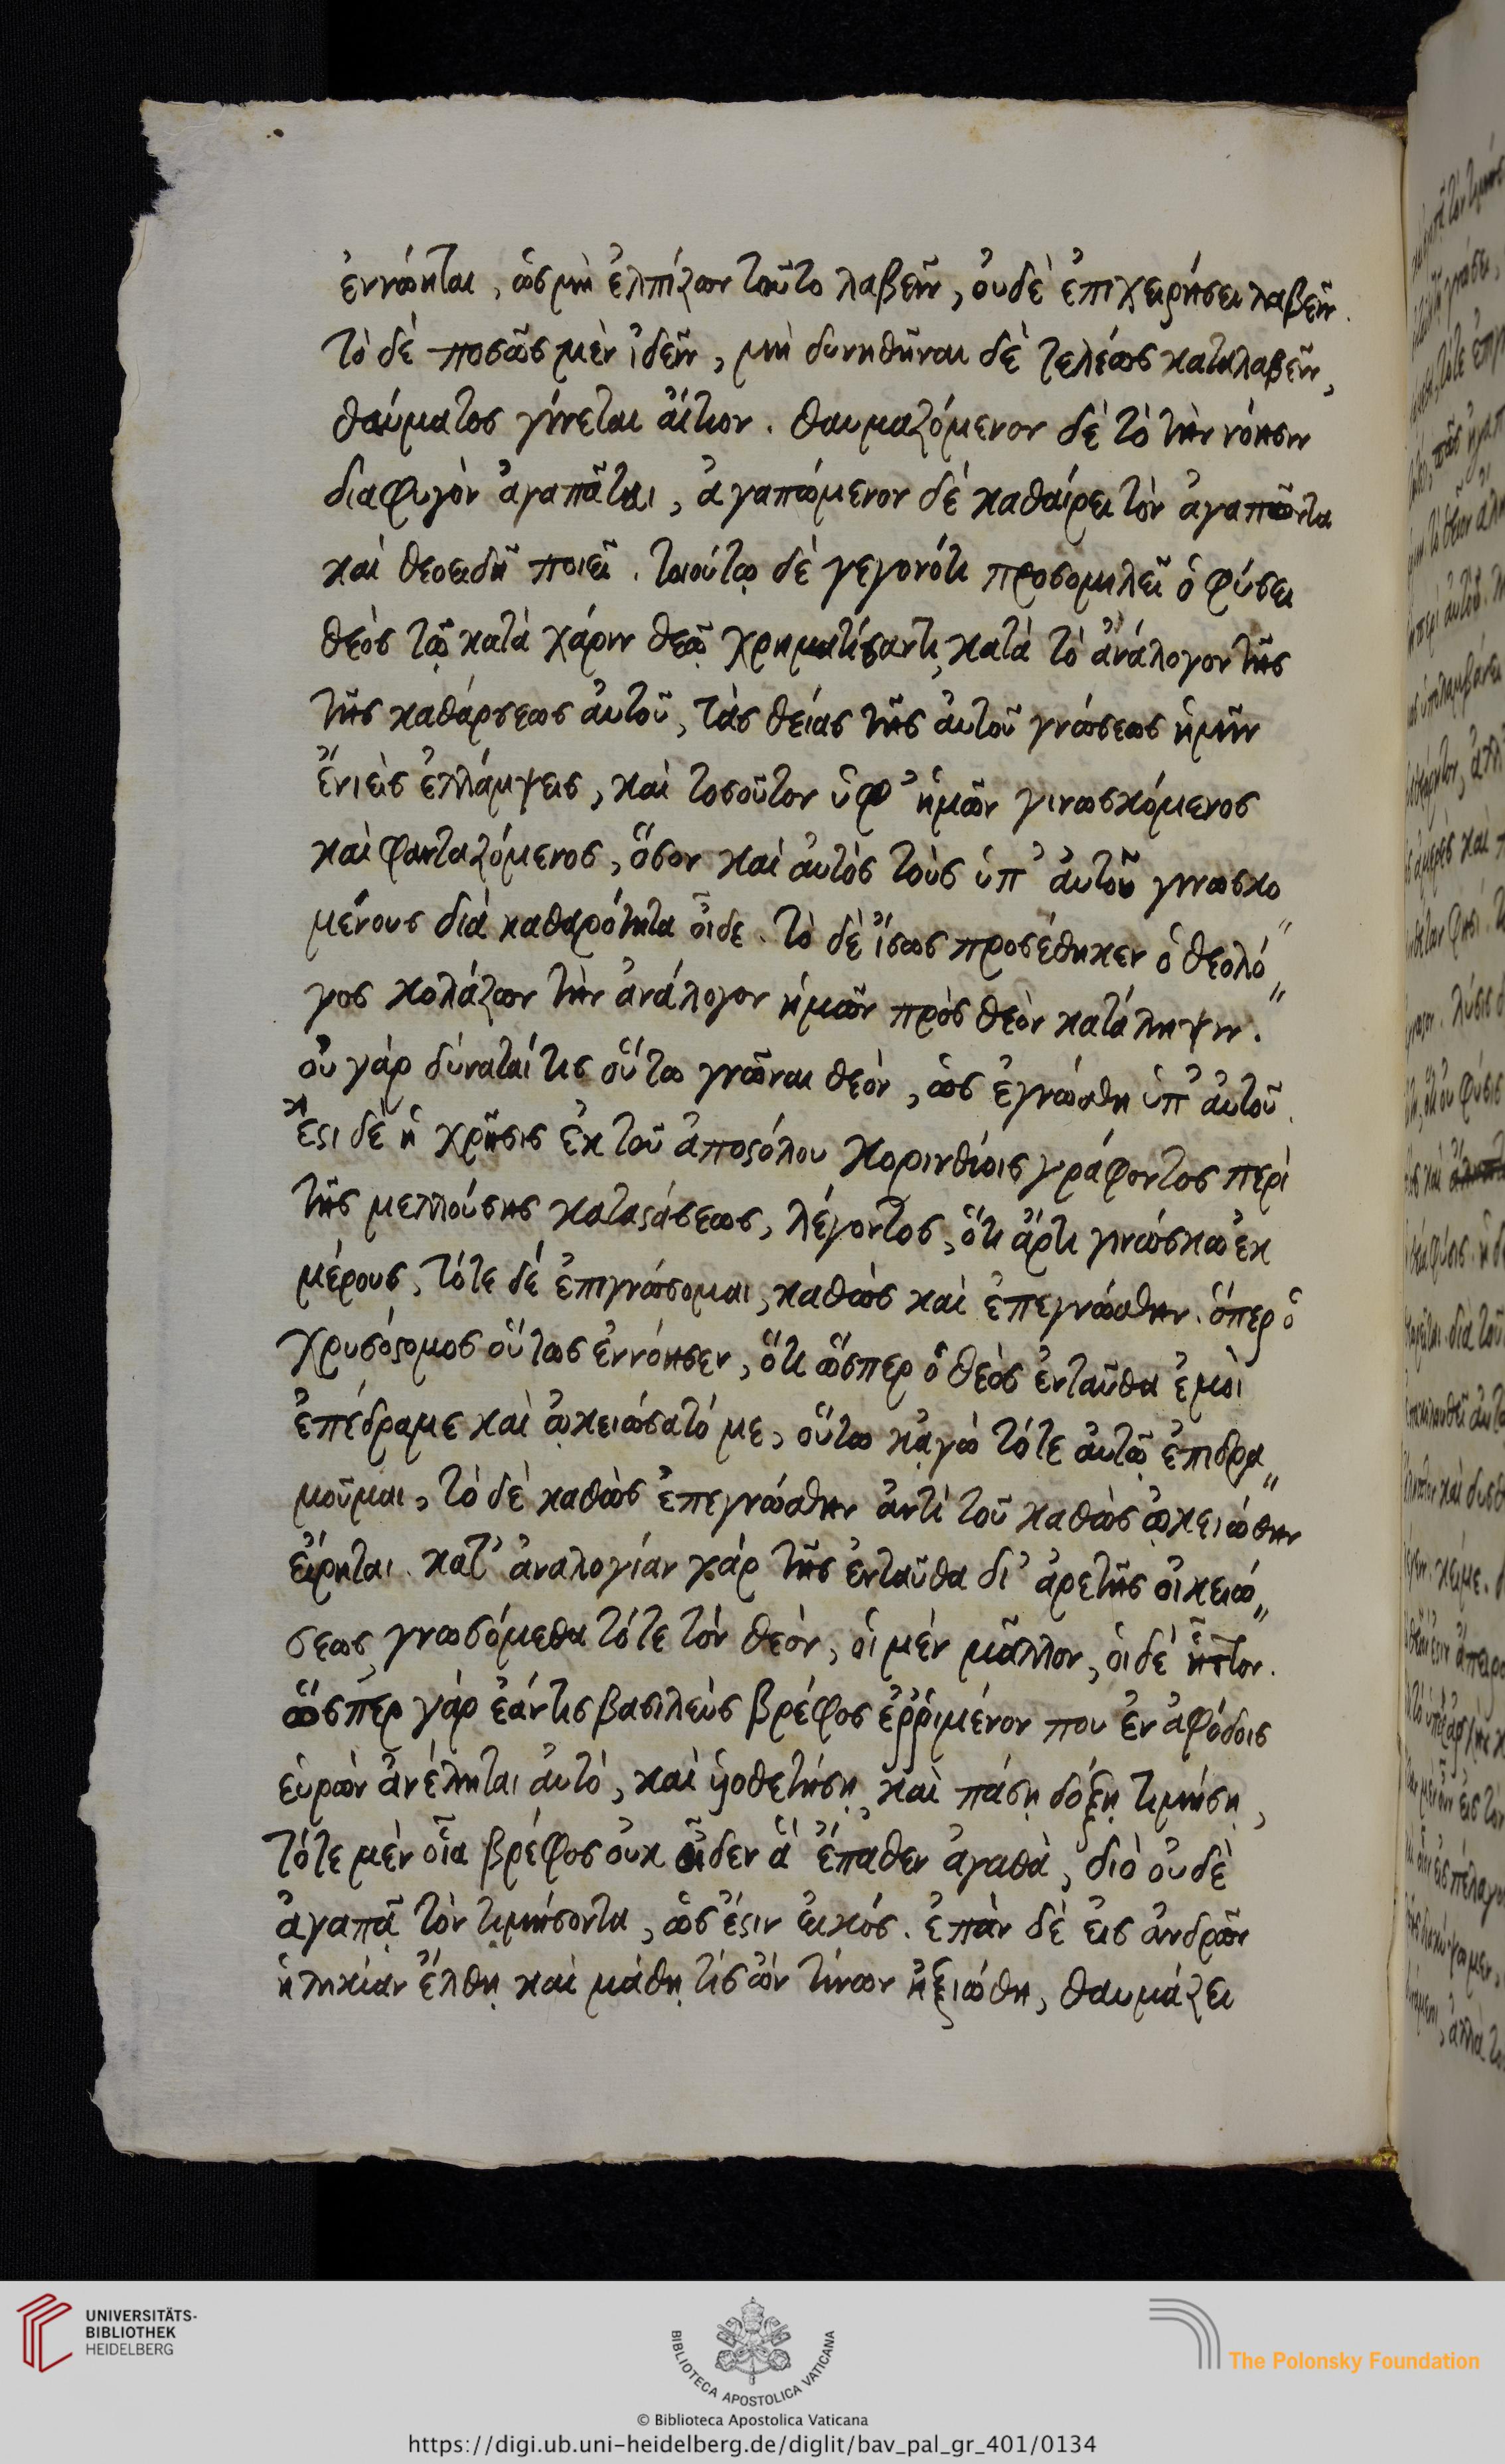 ἐννοῆται, ὡς μὴ ἐλπίζων τοῦτο λαβεῖν, οὐδὲ ἐπιχειρήσει λαβεῖν.
τὸ δὲ ποσῶς μὲν ἰδεῖν, μὴ δυνηθῆναι δὲ τελέως καταλαβεῖν,
θαύματος γίνεται αἴτιον. θαυμαζόμενον δὲ τὸ τὴν νόησιν
διαφυγὸν ἀγαπᾶται, ἀγαπώμενον δὲ καθαίρει τὸν ἀγαπῶντα
καὶ θεοειδῆ ποιεῖ. τοιούτῳ δὲ γεγονότι προσομιλεῖ ὁ φύσει
θεὸς τῷ κατὰ χάριν θεῷ χρηματίσαντι, κατὰ τὸ ἀνάλογον τῆς
τῆς καθάρσεως αὐτοῦ, τὰς θείας τῆς αὐτοῦ γνώσεως ἡμῖν
ἐνιεὶς ἐλλάμψεις, καὶ τοσοῦτον ὑφ' ἡμῶν γινωσκόμενος
καὶ φανταζόμενος, ὅσον καὶ αὐτὸς τοὺς ὑπ' αὐτοῦ γινωσκο
μένους διὰ καθαρότητα οἶδε. τὸ δὲ ἴσως προσέθηκεν ὁ θεολό"
γος κολάζων τὴν ἀνάλογον ἡμῶν πρὸς θεὸν κατάληψιν.
οὐ γὰρ δύναταί τις οὕτω γνῶναι θεὸν, ὡς ἐγνώσθη ὑπ' αὐτοῦ.
ἔστι δὲ ἡ χρῆσις ἐκ τοῦ ἀποστόλου Κορινθίοις γράφοντος περὶ
τῆς μελλούσης καταστάσεως, λέγοντος, ὅτι ἄρτι γινώσκω ἐκ
μέρους, τότε δὲ ἐπιγνώσομαι, καθὼς καὶ ἐπεγνώσθην. ὅπερ ὁ
χρυσόστομος οὕτως ἐννόησεν, ὅτι ὥσπερ ὁ θεὸς ἐνταῦθα ἐμοὶ
ἐπέδραμε καὶ ᾠκειώσατό με, οὕτω κᾀγὼ τότε αὐτῷ ἐπιδρα"
μοῦμαι, τὸ δὲ καθὼς ἐπεγνώσθην ἀντὶ τοῦ καθὼς ᾠκειώθην
εἴρηται. κατ' ἀναλογίαν γὰρ τῆς ἐνταῦθα δι' ἀρετῆς οἰκειώ"
σεως, γνωσόμεθα τότε τὸν θεὸν, οἱ μὲν μᾶλλον, οἱ δὲ ἧττον.
ὥσπερ γὰρ ἐάν τις βασιλεὺς βρέφος ἐῤῥιμένον που ἐν ἀφόδοις
εὑρὼν ἀνέληται αὐτὸ, καὶ υἱοθετήσῃ καὶ πάσῃ δόξῃ τιμήσῃ,
τότε μὲν οἷα βρέφος οὐκ οἶδεν ἃ ἔπαθεν ἀγαθὰ, διὸ οὐδὲ
ἀγαπᾷ τὸν τιμήσοντα, ὥς ἐστιν εἰκός. ἐπὰν δὲ εἰς ἀνδρῶν
ἡλικίαν ἔλθῃ καὶ μάθῃ τίς ὢν τίνων ἠξιώθη, θαυμάζει
UNIVERSITÄTS-
BIBLIOTHEK
HEIDELBERG
BIBLIOTECA APOSTOLICA VATICANA
The Polonsky Foundation
© Biblioteca Apostolica Vaticana
https://digi.ub.uni-heidelberg.de/diglit/bav_pal_gr_401/0134